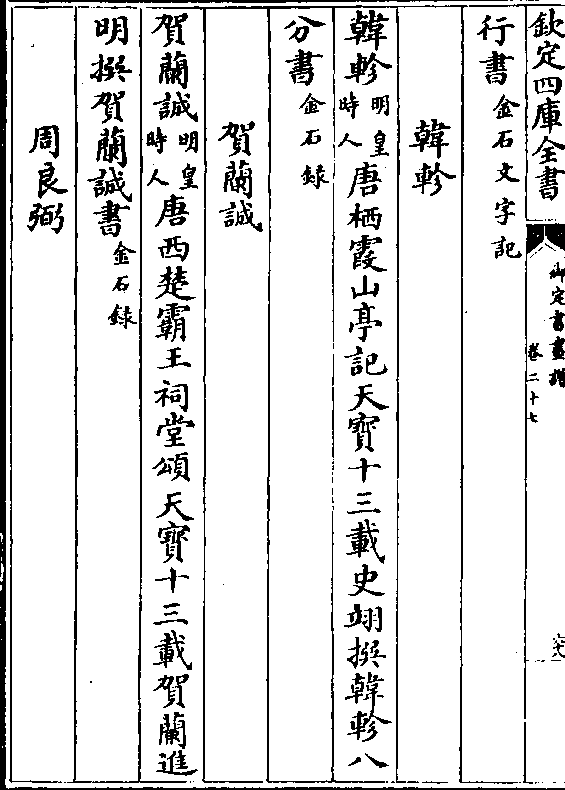 欽定四庫全書
御定書畫譜
卷二十七
行書金石文字記
韓軫
韓軫明皇時人唐栖霞山亭記天寶十三載史翊撰韓軫八
分書金石録
賀蘭誠
賀蘭誠明皇時人唐西楚霸王祠堂頌天寶十三載賀蘭進
明撰賀蘭誠書金石録
周良弼